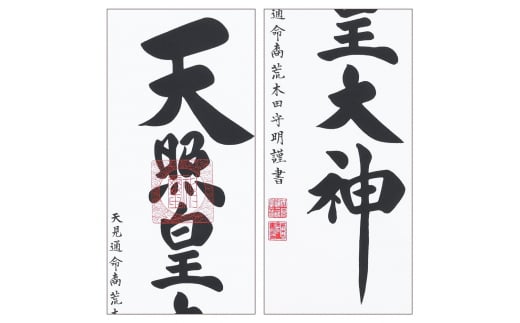 天照皇大
天見通命裔荒木
皇大神
通命裔荒木田守明謹書